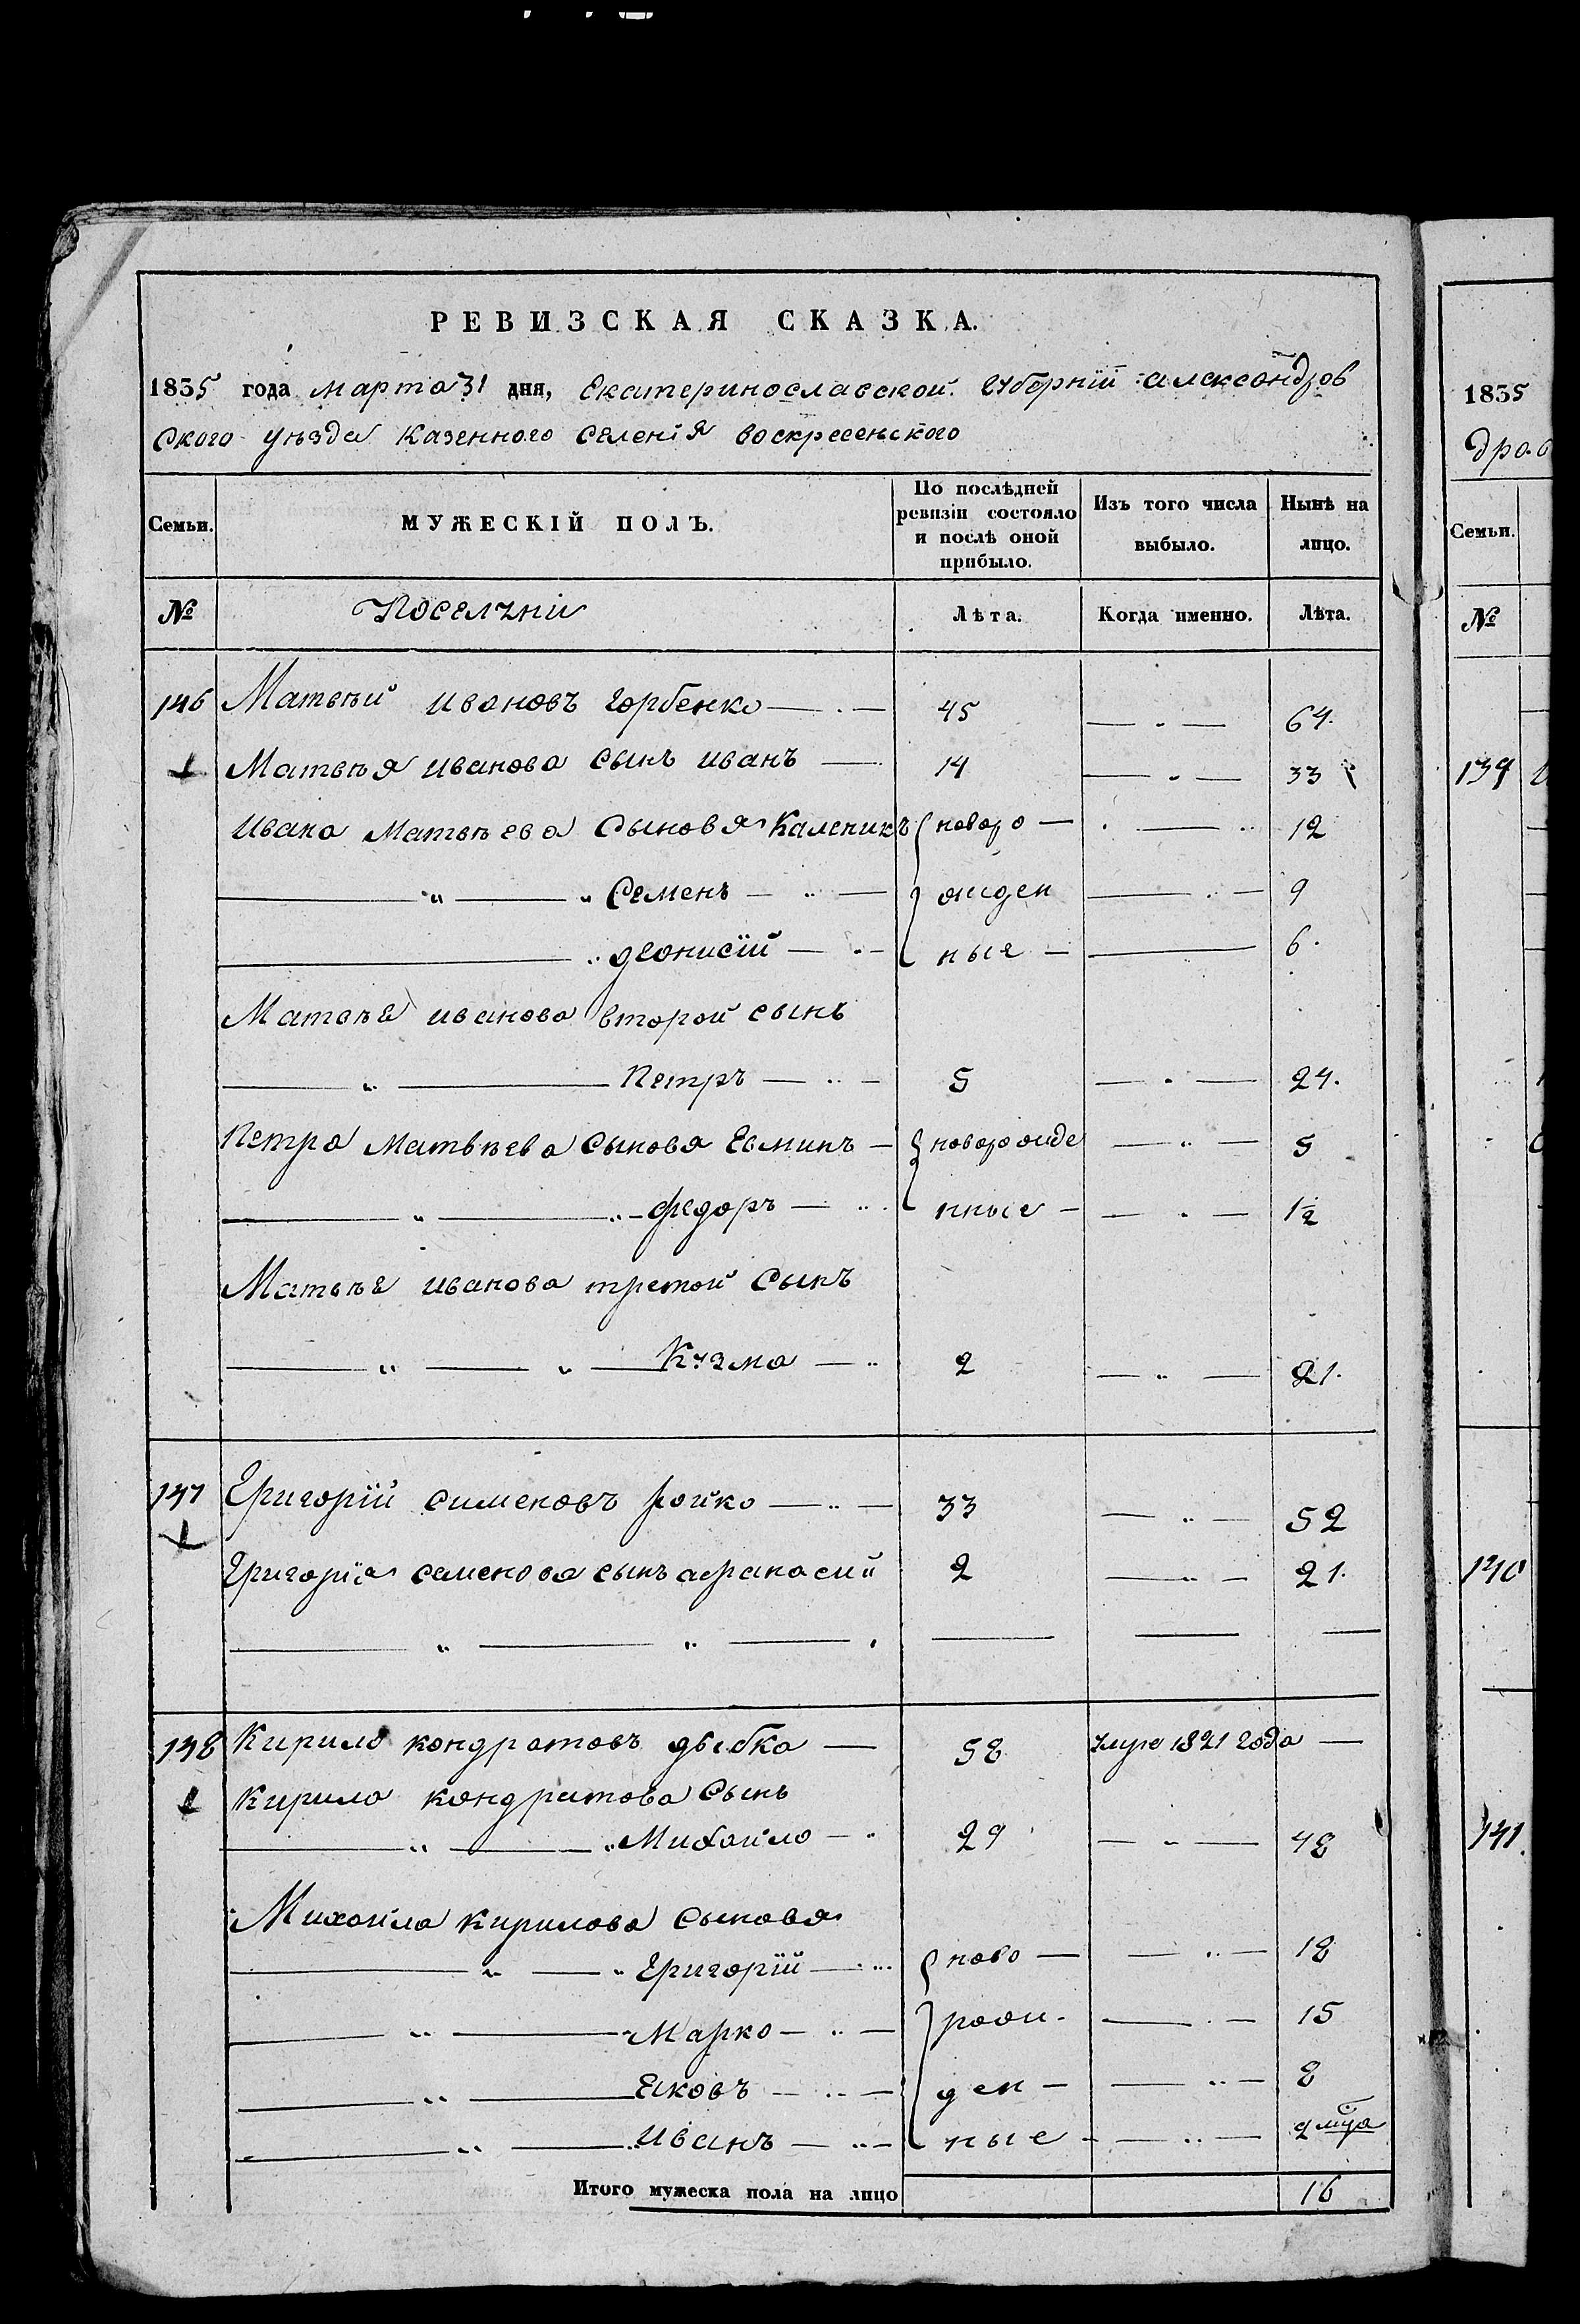 РЕВИЗСКАЯ СКАЗКА.
1835 года марта 31 дня, Екатеринославской Губернїй александров
ского уѣзда казенного селенїя воскресенского
Семьи. МУЖЕСКІЙ ПОЛЪ. По послѣдней ревизіи состояло и послѣ оной прибыло. Изъ того числа выбыло. Нынѣ на лицо.
№ Поселяни Лѣта. Когда именно. Лѣта.
136 Матвѣй ивановъ горбенко 45 64.
Матвѣя иванова сынъ иванъ 14 33
ивана Матвѣева сыновя Каленикъ новоро 12
Семенъ жден 9
деонисїй ные 6.
Матвѣя иванова второй сынъ
Петръ 5 24.
Петра Матвѣева сыновя Евминъ новорожде 5
федоръ нные 1/2
Матвѣя иванова третой сынъ
Кузма 2 21.
137 Григорїй сименовъ ройко 33 52
Григорїя семенова сынъ афанасий 2 21.
138 Кирило кондратовъ дыбка 58 умре 1821 года
Кирила кондратова сынъ
Михайло 29 48
Михайла кирилова сыновя
Григорїй ново 18
Марко рож 15
Яковъ ден 8
иванъ ные 2 мца
Итого мужеска пола на лицо 16
1835
дров
Семьи.
№
139
140
141.